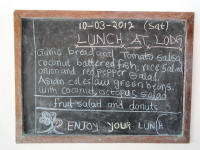 10-03-2012 (Sat)
LUNCH AT LODG
Garlic bread and Tomato Salsa
coconut battered fish, rice salad
onion and red pepper Salad
Asian coleslaw green beans.
with coconut, octopus salad
fruit salad and donuts
ENJOY YOUR LUNCH